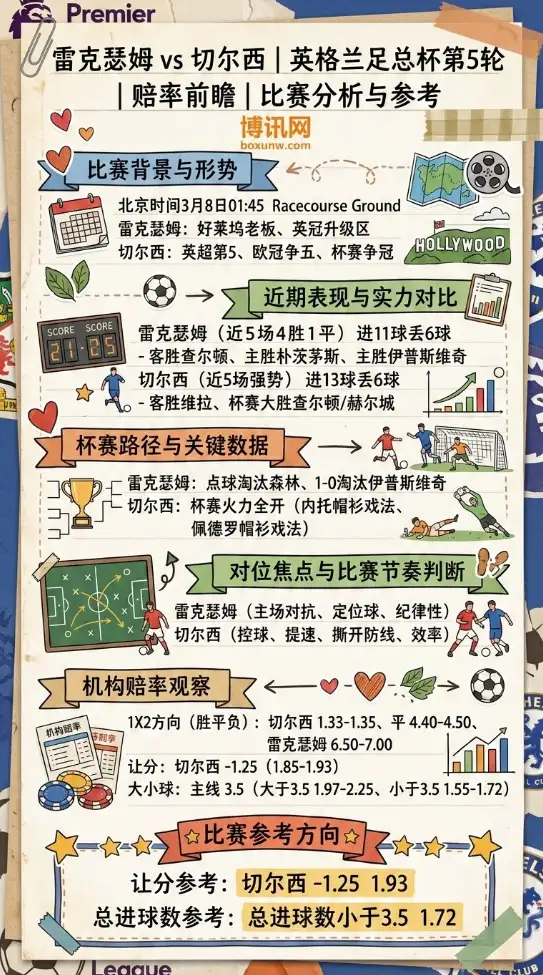 Premier
雷克瑟姆 vs 切尔西 | 英格兰足总杯第5轮
| 赔率前瞻 | 比赛分析与参考
博讯网
boxunw.com
比赛背景与形势
北京时间3月8日01:45 Racecourse Ground
雷克瑟姆：好莱坞老板、英冠升级区
切尔西：英超第5、欧冠争五、杯赛争冠
HOLLYWOOD
近期表现与实力对比
SCORE SCORE
21-25
雷克瑟姆（近5场4胜1平）进11球丢6球
- 客胜查尔顿、主胜朴茨茅斯、主胜伊普斯维奇
切尔西（近5场强势）进13球丢6球
- 客胜维拉、杯赛大胜查尔顿/赫尔城
杯赛路径与关键数据
雷克瑟姆：点球淘汰森林、1-0淘汰伊普斯维奇
切尔西：杯赛火力全开（内托帽衫戏法、
佩德罗帽衫戏法）
对位焦点与比赛节奏判断
雷克瑟姆（主场对抗、定位球、纪律性）
切尔西（控球、提速、撕开防线、效率）
机构赔率观察
机构赔率
1X2方向（胜平负）：切尔西 1.33-1.35、平 4.40-4.50、
雷克瑟姆 6.50-7.00
让分：切尔西 -1.25（1.85-1.93）
大小球：主线 3.5（大于3.5 1.97-2.25、小于3.5 1.55-1.72）
比赛参考方向
让分参考：切尔西 -1.25 1.93
总进球数参考：总进球数小于3.5 1.72
League